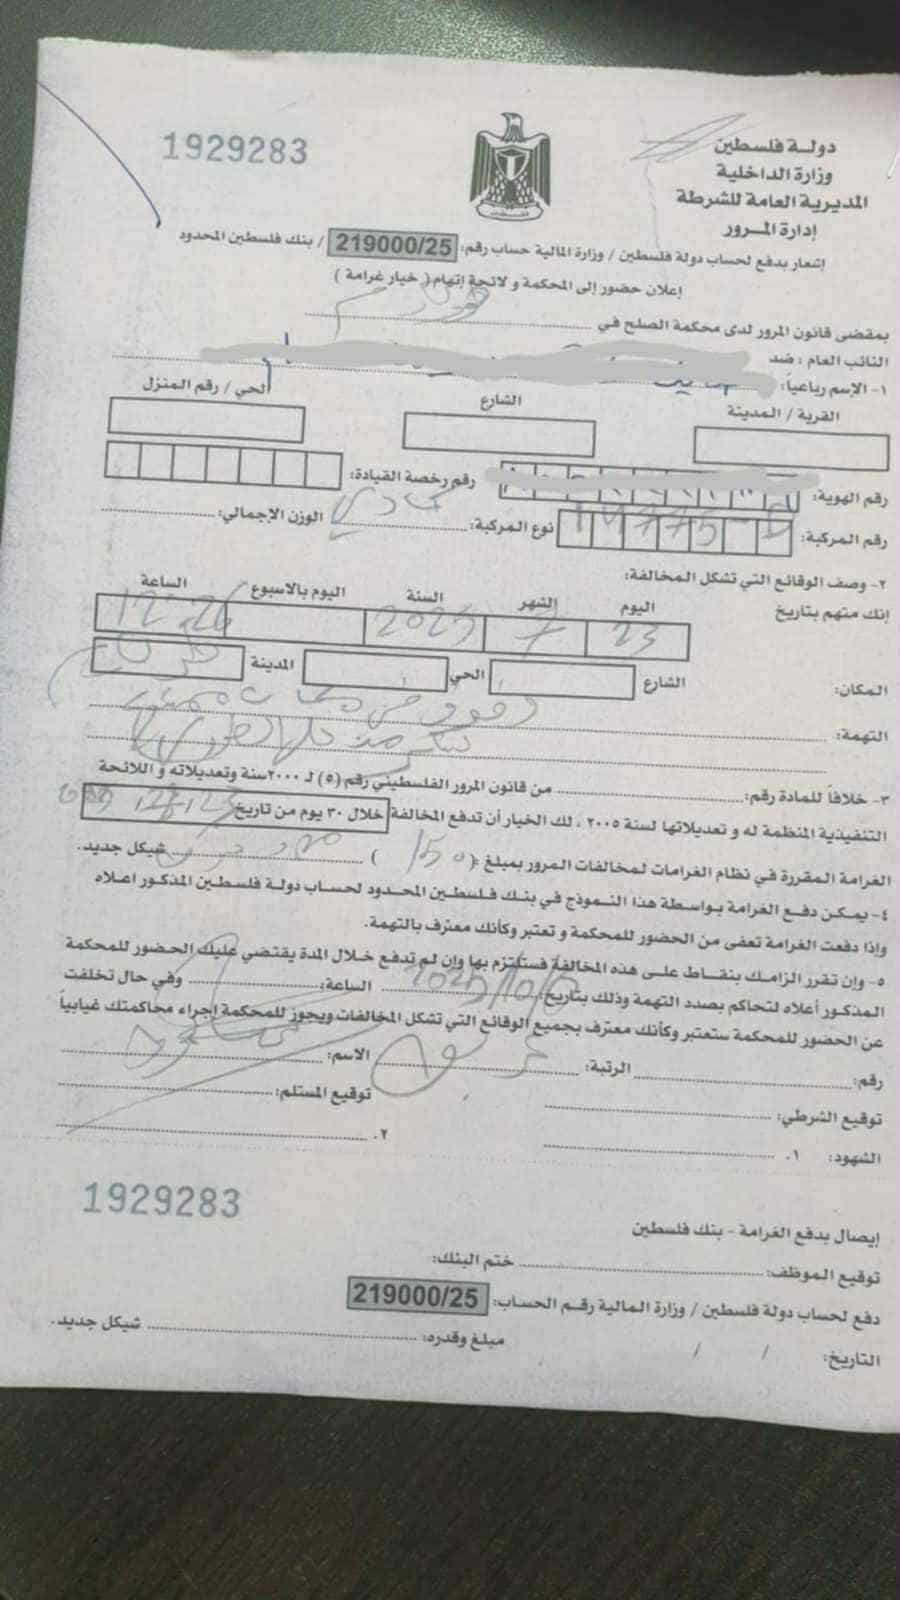 1929283
دولة فلسطين
وزارة الداخلية
المديرية العامة للشرطة
إدارة المرور
إشعار بدفع لحساب دولة فلسطين / وزارة المالية حساب رقم: 219000/25 / بنك فلسطين المحدود
إعلان حضور إلى المحكمة و لائحة إتهام ( خيار غرامة )
بمقضى قانون المرور لدى محكمة الصلح في
النائب العام : ضد
١- الإسم رباعياً:
القرية / المدينة الشارع الحي / رقم المنزل
رقم الهوية: رقم رخصة القيادة:
رقم المركبة: نوع المركبة: الوزن الإجمالي:
٢- وصف الوقائع التي تشكل المخالفة:
اليوم الشهر السنة اليوم بالاسبوع الساعة
إنك متهم بتاريخ 23 7 2025 12:26
المكان: الشارع الحي المدينة
التهمة:
٣- خلافاً للمادة رقم: من قانون المرور الفلسطيني رقم (٥) لـ ٢٠٠٠سنة وتعديلاته و اللائحة
التنفيذية المنظمة له و تعديلاتها لسنة ٢٠٠٥ ، لك الخيار أن تدفع المخالفة خلال ٣٠ يوم من تاريخ
الغرامة المقررة في نظام الغرامات لمخالفات المرور بمبلغ :( 150 ) شيكل جديد.
٤- يمكن دفع الغرامة بواسطة هذا النموذج في بنك فلسطين المحدود لحساب دولة فلسطين المذكور اعلاه
وإذا دفعت الغرامة تعفى من الحضور للمحكمة و تعتبر وكأنك معترف بالتهمة.
٥- وإن تقرر الزامك بنقاط على هذه المخالفة فستلتزم بها وإن لم تدفع خلال المدة يقتضي عليك الحضور للمحكمة
المذكور أعلاه لتحاكم بصدد التهمة وذلك بتاريخ: الساعة: وفي حال تخلفت
عن الحضور للمحكمة ستعتبر وكأنك معترف بجميع الوقائع التي تشكل المخالفات ويجوز للمحكمة إجراء محاكمتك غيابياً
رقم: الرتبة: الاسم:
توقيع الشرطي: توقيع المستلم:
الشهود: ١. ٢.
1929283
إيصال بدفع الغرامة - بنك فلسطين
توقيع الموظف: ختم البنك:
دفع لحساب دولة فلسطين / وزارة المالية رقم الحساب: 219000/25
التاريخ: / / مبلغ وقدره: شيكل جديد.